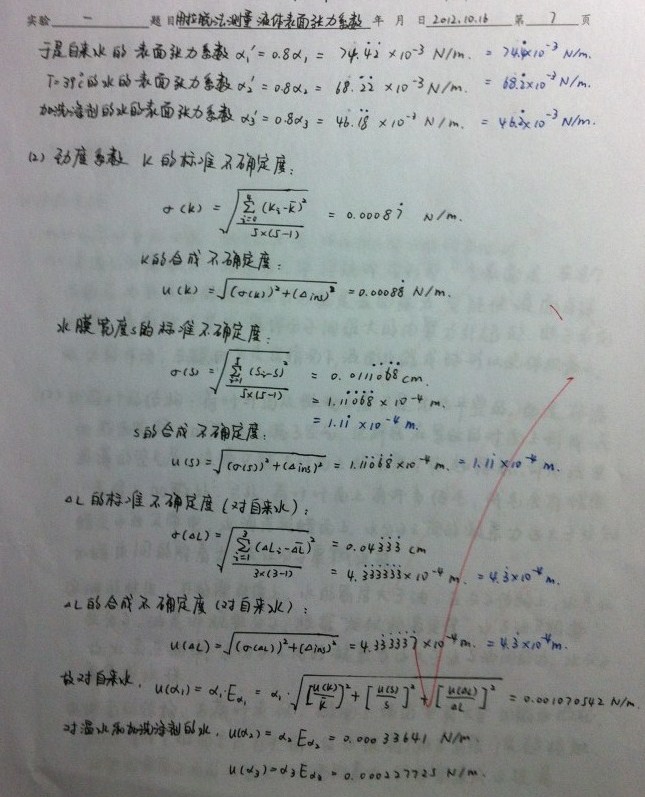 实验 一 题目 用拉脱法测量液体表面张力系数 年 月 日 2012.10.16 第 7 页
于是自来水的表面张力系数 α₁' = 0.8α₁ = 74.4̇2̇ ×10⁻³ N/m. = 74.4̇×10⁻³ N/m.
T=39℃的水的表面张力系数 α₂' = 0.8α₂ = 68.2̇2̇ ×10⁻³ N/m. = 68.2̇×10⁻³ N/m.
加洗涤剂的水的表面张力系数 α₃' = 0.8α₃ = 46.1̇8̇ ×10⁻³ N/m. = 46.2̇×10⁻³ N/m.
(2) 劲度系数 K 的标准不确定度:
σ(k) = √(Σ(Kᵢ-K̄)²/5×(5-1)) = 0.00087̇ N/m.
K的合成不确定度:
u(k) = √((σ(k))²+(Δins)²) = 0.00088̇ N/m.
水膜宽度s的标准不确定度:
σ(s) = √(Σ(Sᵢ-S̄)²/5×(5-1)) = 0.0111̇0̇6̇8̇ cm.
= 1.11̇0̇6̇8̇ ×10⁻⁴ m.
= 1.11̇ ×10⁻⁴ m.
S的合成不确定度:
u(s) = √((σ(s))²+(Δins)²) = 1.11̇0̇6̇8̇×10⁻⁴ m. = 1.11̇×10⁻⁴ m.
ΔL的标准不确定度(对自来水):
σ(ΔL) = √(Σ(ΔLᵢ-ΔL̄)²/3×(3-1)) = 0.043̇3̇3̇ cm
= 4.3̇3̇3̇3̇3̇×10⁻⁴ m. = 4.3̇×10⁻⁴ m.
ΔL的合成不确定度(对自来水):
u(ΔL) = √((σ(ΔL))²+(Δins)²) = 4.3̇3̇3̇3̇7̇×10⁻⁴ m. = 4.3̇×10⁻⁴ m.
故对自来水, u(α₁) = α₁·E_α₁ = α₁·√([u(k)/k̄]²+[u(s)/s̄]²+[u(ΔL)/ΔL]²) = 0.001070542 N/m.
对温水和加洗涤剂的水, u(α₂) = α₂E_α₂ = 0.00033641 N/m.
u(α₃) = α₃E_α₃ = 0.000227725 N/m.